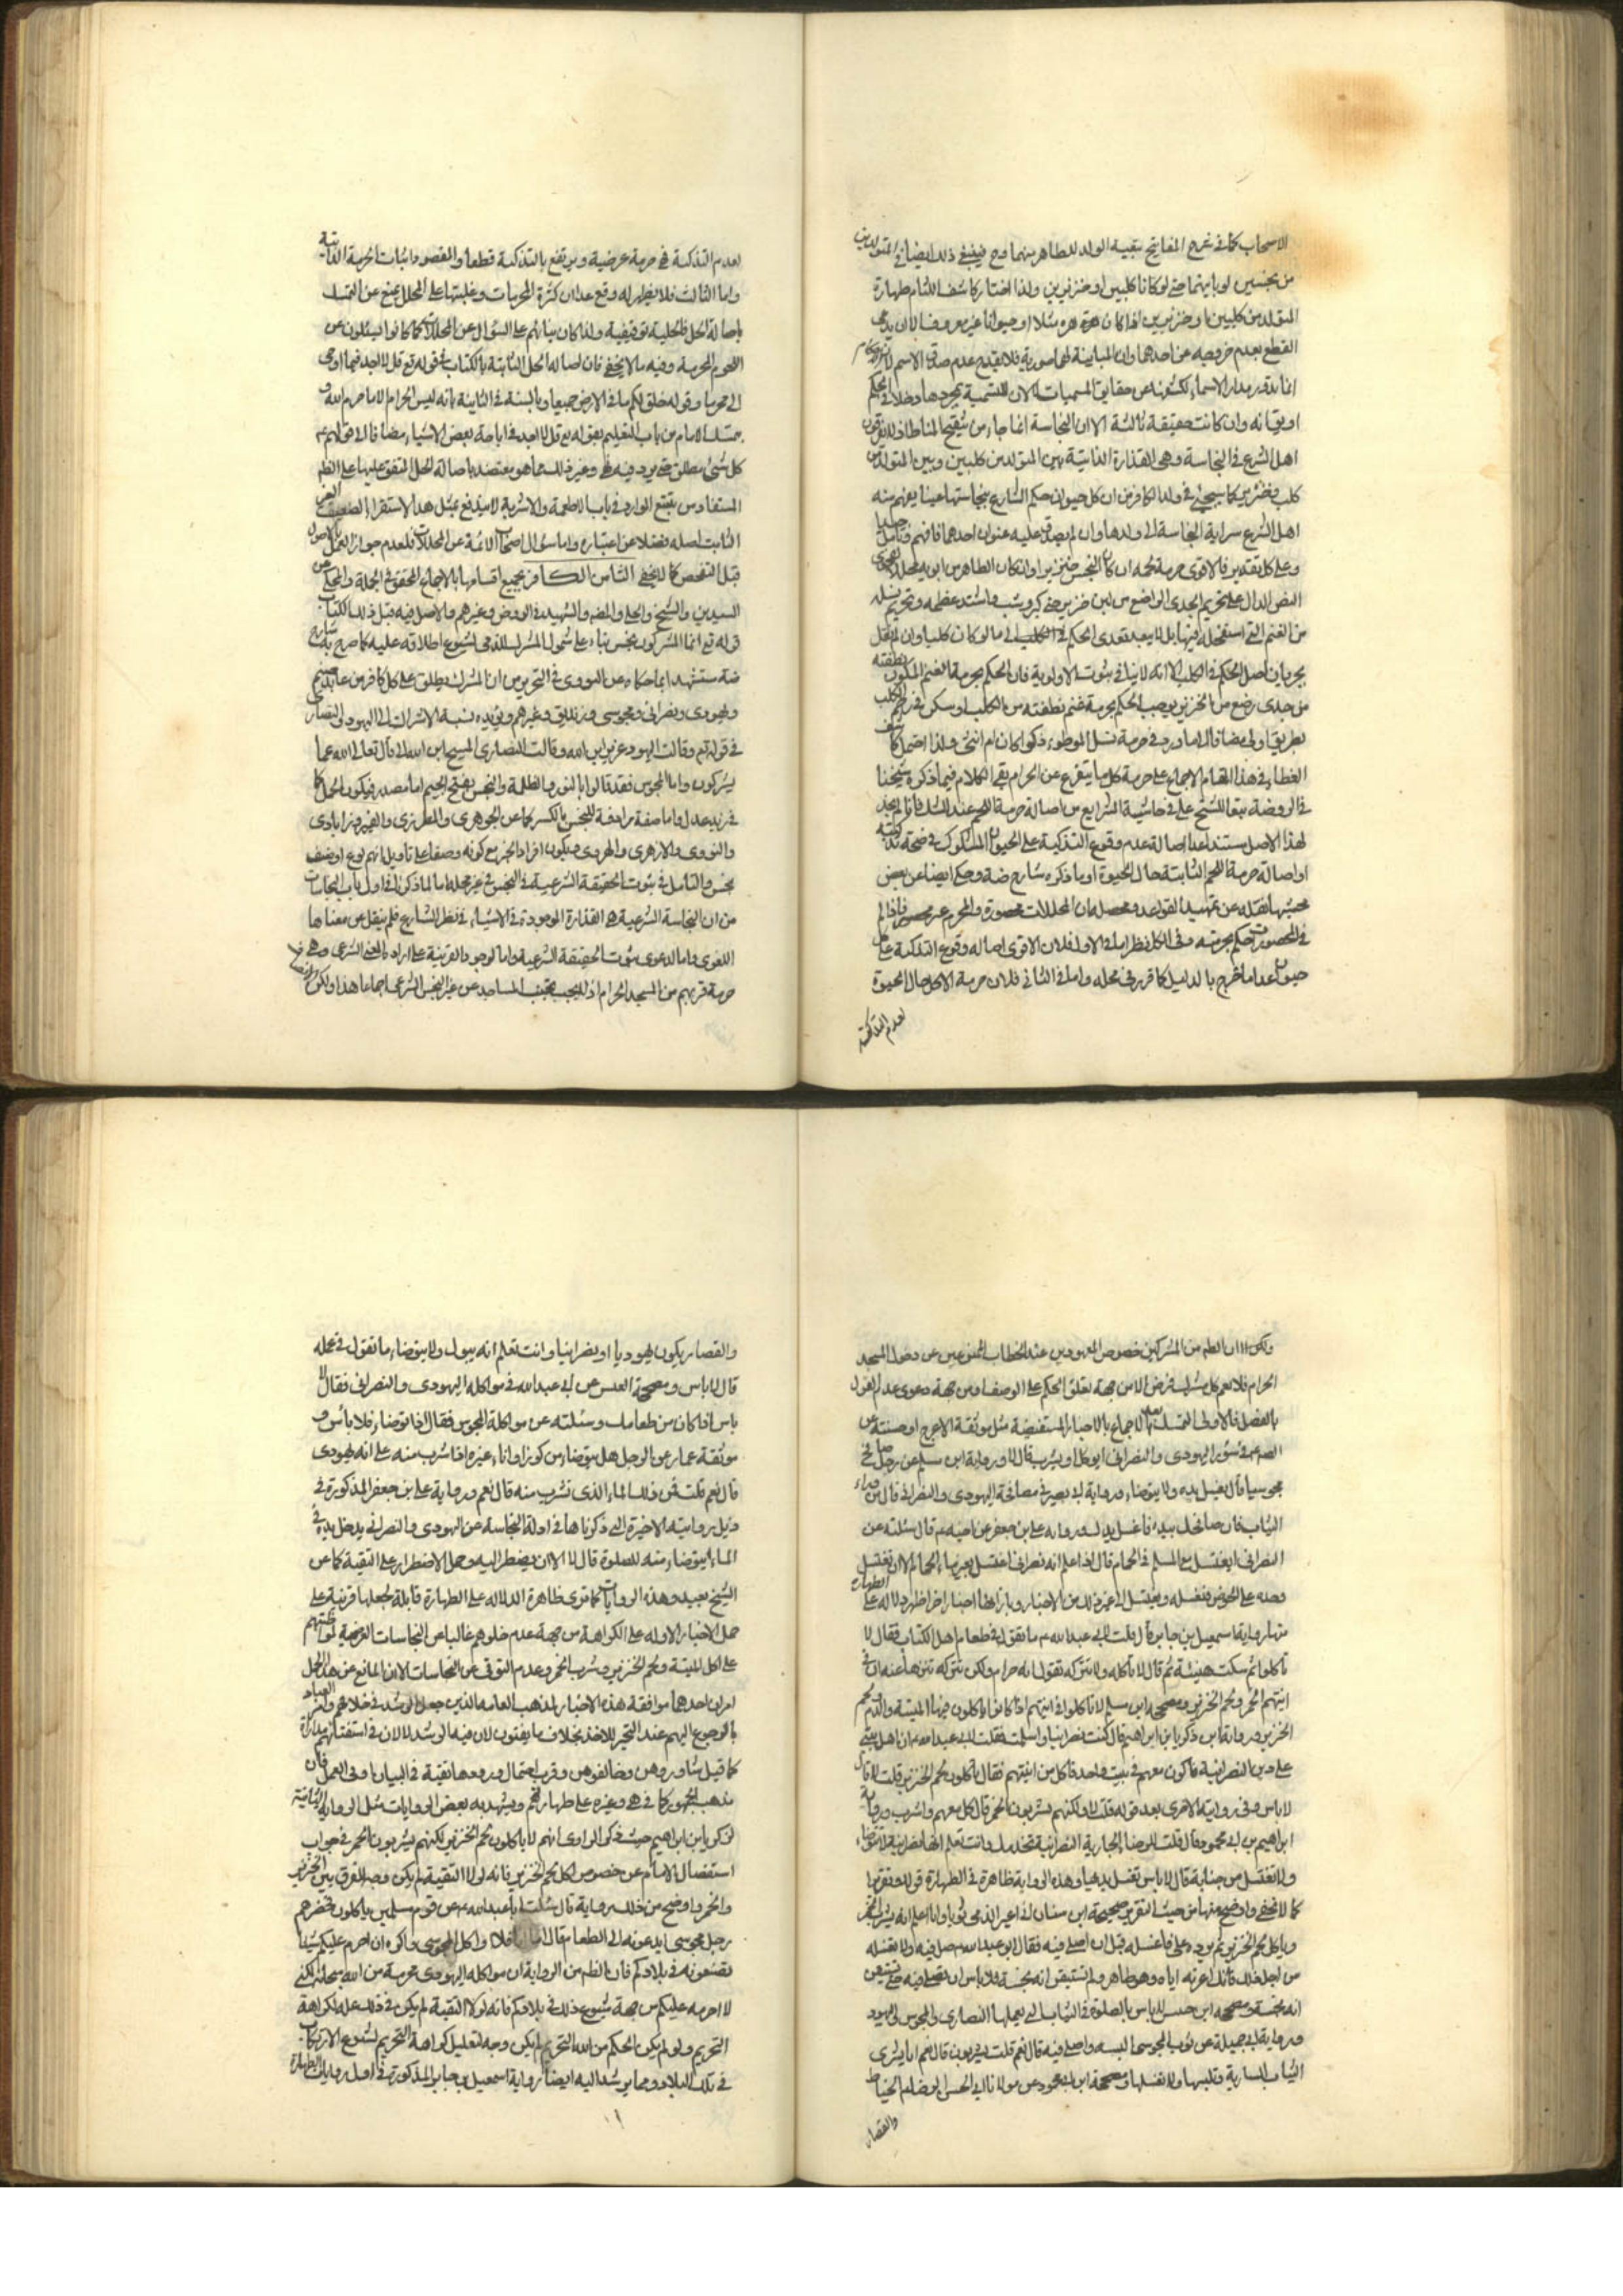 الاصحاب كما في شرح المفاتيح بتبعية الولد للطاهر منهما وح فينبغي ذلك ايضا في المتولدين
من نجسين لو باينهما حتى لو كانا كلبين او خنزيرين ولذا اختار كاشف اللثام طهارة
المتولد من كلبين او خنزيرين اذا كان هرة مثلا او حيوانا غير معروف الا ان يدعى
القطع بعدم خروجه عن احدهما وان المباينة لهما صورية فلا يقدح عدم صدق الاسم
انما تدور مدار الاسماء لكشفها عن حقايق المسميات لا ان للتسمية بمجردها دخلا في الحكم
او يق انه وان كانت حقيقة ثالثة الا ان النجاسة انما جاءت من تنقيح المناط
اهل الشرع في النجاسة وهي القذارة الذاتية بين المتولد من كلبين وبين المتولد من
كلب وخنزير كما سيجيئ في ولد الكافر من ان كل حيوان حكم الشارع بنجاستها عينا يفهم منه
اهل الشرع سراية النجاسة الى ولدها وان لم يصدق عليه عنوان احدهما فافهم وتامل جيدا
وعلى كل تقدير فالاقوى حرمة لحمه ان كان النجس خنزيرا وان كان الطاهر من ابويه محللا
النص الدال على تحريم الجدى الراضع من لبن خنزير حتى كبر وشب واشتد عظمه وتحريم نسله
من الغنم التي استفحله فيها بل لا يبعد تعدى الحكم في الكلب الى ما لو كان كلبا وان لم نقل
بجريان اصل الحكم في الكلب الا انه لا ينافى ثبوت الاولوية فان الحكم بحرمة الغنم المتكون نطفته
من جدى رضع من الخنزير يوجب الحكم بحرمة غنم نطفته من الكلب او سكن في رحم الكلب
بطريق اولى مضافا الى ما ورد في حرمة نسل الموطوء ذكرا كان ام انثى ولذا
الغطاء في هذا المقام الاجماع على حرمة كل ما يتفرع عن الحرام بقى الكلام فيما ذكره شيخنا
في الروضة تبعا للشيخ على في حاشية الشرايع من اصالة حرمة اللحم عند الشك فانا لم نجد
لهذا الاصل مستندا عدا اصالة عدم وقوع التذكية على الحيوان المشكوك في صحة تذكيته
او اصالة حرمة اللحم الثابتة حال الحيوة او ما ذكره شارح ضة وحكى ايضا عن بعض
محشيها نقله عن تمهيد القواعد ومحصله ان المحللات محصورة والمحرم غير محصور فاذا لم
في المحصورات حكم بحرمته وفي الكل نظر اما في الاول فلان الاقوى اصالة وقوع التذكية على كل
حيوان عدا ما خرج بالدليل كما قرر في محله واما في الثاني فلان حرمة الاكل حال الحيوة
لعدم التذكية
لعدم التذكية في حرمة عرضية ويرتفع بالتذكية قطعا والمقصود اثبات الحرمة الذاتية
واما الثالث فلا يظهر له وقع عدا ان كثرة المحرمات وغلبتها على المحلل يمنع عن التمسك
باصالة الحل فالحلية توقيفية ولذا كان بناؤهم على السؤال عن المحللات كما كانوا يسئلون عن
اللحوم المحرمة وفيه ما لا يخفى فان اصالة الحل الثابتة بالكتاب في قوله تع قل لا اجد فيما اوحى
الى محرما وقوله خلق لكم ما في الارض جميعا وبالسنة في الثابتة بانه ليس الحرام الا ما حرم الله
تمسك الامام من باب التعليم بقوله تع قل لا اجد في اباحة بعض الاشياء مضافا الى قولهم ع
كل شئ مطلق حتى يرد فيه نهى وغير ذلك مما هو معتضد باصالة الحل المتفق عليها على الظم
المستفاد من تتبع الموارد في باب الاطعمة والاشربة لا يندفع بمثل هذا الاستقراء الضعيف الغير
الثابت اصله فضلا عن اعتباره واما سؤال اصحاب الائمة عن المحللات فلعدم جواز العمل بالاصول
قبل الفحص كما لا يخفى الثامن الكافر بجميع اقسامها بالاجماع المحقق في الجملة والمحكى عن
السيدين والشيخ والحلي والمصنف والشهيد في الروض وغيرهم والاصل فيه قبل ذلك الكتاب
قوله تع انما المشركون نجس بناء على شمول المشرك للذمى لشيوع اطلاقه عليه كما صرح به شارح
ضة مستشهدا بما حكاه عن النووى في التحرير من ان المشرك يطلق على كل كافر من عابد صنم
ويهودى ونصرانى ومجوسى وزنديق وغيرهم ويؤيده نسبة الاشراك الى اليهود والنصارى
في قوله تع وقالت اليهود عزير ابن الله وقالت النصارى المسيح ابن الله الى قال تعالى الله عما
يشركون واما المجوس فقد قالوا بالنور والظلمة والنجس بفتح الجيم اما مصدر فيكون الحمل كما
في زيد عدل واما صفة مرادفة للنجس بالكسر كما عن الجوهرى والمطرزى والفيروزابادى
والنووى والازهرى والهروى ويكون افراد الخبر مع كونه وصفا على تاويل انهم نوع او صنف
نجس والتامل في ثبوت الحقيقة الشرعية في النجس في غير محله اما لما ذكرنا في اول باب النجاسات
من ان النجاسة الشرعية هي القذارة الموجودة في الاشياء في نظر الشارع فلم ينقل عن معناها
اللغوى واما لدعوى ثبوت الحقيقة الشرعية واما لوجود القرينة على ارادة المعنى الشرعى وهى
حرمة قربهم من المسجد الحرام اذ لا يجب تجنب المساجد عن غير النجس الشرعى اجماعا هذا ولكن
ولكن الانصاف ان الظم من المشركين خصوص المعهودين عند الخطاب الممنوعين عن دخول المسجد
الحرام فلا يعم كل مشرك فرض الا من جهة تعلق الحكم على الوصف او من جهة دعوى عدم القول
بالفصل فالاولى التمسك بعد الاجماع بالاخبار المستفيضة مثل موثقة الاعرج او حسنته عن
الصم ع في سؤر اليهودى والنصرانى ايؤكل او يشرب قال لا ورواية ابن مسلم عن رجل صافح
مجوسيا قال يغسل يده ولا يتوضاء ورواية ابى بصير في مصافحة اليهودى والنصرانى قال من وراء
الثياب فان صافحك بيده فاغسل يدك ورواية على بن جعفر عن اخيه ع قال سئلته عن
النصرانى ايغتسل مع المسلم في الحمام قال اذا علم انه نصرانى اغتسل بغير ماء الحمام الا ان يغتسل
وحده على الحوض فيغسله ويغتسل الى غير ذلك من الاخبار وبازائها اخبار اخر اظهر دلالة على الطهارة
منها رواية اسمعيل بن جابر قال قلت لابى عبد الله ع ما تقول في طعام اهل الكتاب فقال لا
تأكله ثم سكت هنيئة ثم قال لا تأكله ولا تتركه تقول انه حرام ولكن تتركه تنزها عنه ان في
انيتهم الخمر ولحم الخنزير وصحيحة ابن مسلم لا تأكلوا في انيتهم اذا كانوا ياكلون فيها الميتة والدم ولحم
الخنزير ورواية زكريا بن ابراهيم قال كنت نصرانيا واسلمت فقلت لابى عبد الله ع ان اهل بيتى
على دين النصرانية فاكون معهم في بيت واحد فاكل من انيتهم فقال ياكلون لحم الخنزير قلت لا قال
لا باس وفي روايته الاخرى بعد قوله قلت لا ولكنهم يشربون الخمر قال كل معهم واشرب ورواية
ابراهيم بن ابى محمود قال قلت للرضا ع الجارية النصرانية تخدمك وانت تعلم انها نصرانية لا تتوضاء
ولا تغتسل من جنابة قال لا باس تغسل يديها وهذه الرواية ظاهرة في الطهارة قولا وتقريرا
كما لا يخفى واوضح منها من حيث التقرير صحيحة ابن سنان انى اعير الذمى ثوبا وانا اعلم انه يشرب الخمر
ويأكل لحم الخنزير ثم يرده على فاغسله قبل ان اصلى فيه فقال ابو عبد الله ع صل فيه ولا تغسله
من اجل ذلك فانك اعرته اياه وهو طاهر ولم تستيقن انه نجسه فلا باس ان تصلى فيه حتى تستيقن
انه نجسه وصحيحة ابن خنيس لا باس بالصلوة في الثياب التى يعملها النصارى والمجوس واليهود
ورواية ابى جميلة عن ثوب المجوسى البسه واصلى فيه قال نعم قلت يشربون قال نعم انا نشترى
الثياب السابرية ونلبسها ولا نغسلها وصحيحة ابن ابى محمود عن مولانا ابى الحسن الرضا ع الخياط
والقصار
والقصار يكون يهوديا او نصرانيا وانت تعلم انه يبول ولا يتوضاء ما تقول في عمله
قال لا باس وصحيحة العيص عن ابى عبد الله في مواكلة اليهودى والنصرانى فقال لا
باس اذا كان من طعامك وسئلته عن مواكلة المجوس فقال اذا توضاء فلا بأس و
موثقة عمار عن الرجل هل يتوضاء من كوز او اناء غيره اذا شرب منه على انه يهودى
قال نعم قلت فمن ذلك الماء الذى يشرب منه قال نعم ورواية على بن جعفر المذكورة في
ذيل روايته الاخيرة التى ذكرناها في ادلة النجاسة عن اليهودى والنصرانى يدخل يده في
الماء ايتوضاء منه للصلوة قال لا الا ان يضطر اليه وحمل الاضطرار على التقية كما عن
الشيخ بعيد وهذه الروايات كما ترى ظاهرة الدلالة على الطهارة قابلة لجعلها قرينة على
حمل الاخبار الاولة على الكراهة من جهة عدم خلوهم غالبا من النجاسات العرضية لمواظبتهم
على اكل الميتة ولحم الخنزير وشرب الخمر وعدم التوقى عن النجاسات الا ان المانع عن هذا الحمل
امران احدهما موافقة هذه الاخبار لمذهب العامة الذين جعل الرشد في خلافهم وامر العباد
بالرجوع اليهم عند التحير للاخذ بخلاف ما يفتون لان فيه الرشد لا لان في استفتائهم مداراة
كما قيل شاوروهن وخالفوهن وقرب احتمال ورودها تقية في البيان او في العمل فان
مذهب الجمهور كما في هى وغيره على طهارتهم ويشهد به بعض الروايات مثل الرواية الثانية
لزكريا بن ابراهيم حيث ذكر الراوى انهم لا ياكلون لحم الخنزير لكنهم يشربون الخمر في جواب
استفصال الامام عن خصوص اكل لحم الخنزير فانه لولا التقية لم يكن وجه للفرق بين الخنزير
والخمر واوضح من ذلك رواية قال سئلت ابا عبد الله ع عن قوم مسلمين ياكلون يحضرهم
رجل مجوسى ايدعونه الى الطعام قال اما انا فلا اواكل المجوسى واكره ان احرم عليكم شيئا
تصنعونه في بلادكم فان الظم من الرواية ان مواكلة اليهودى محرمة من الله سبحانه لكنى
لا احرمه عليكم من جهة شيوع ذلك في بلادكم فانه لولا التقية لم يكن في ذلك علة لكراهة
التحريم ولو لم يكن الحكم من الله التحريم لم يكن وجه لتعليل كراهة التحريم لشيوع الارتكاب
في تلك البلاد ومما يرشد اليه ايضا رواية اسمعيل بن جابر المذكورة في اول روايات الطهارة